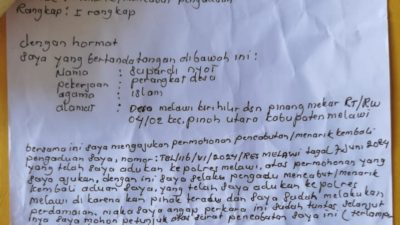 Rangkap : I rangkap
dengan hormat
Saya yang bertanda tangan dibawah ini :
Nama : Supardi nyot
pekerjaan : perangkat desa
agama : islam
alamat : Desa melawi kiri hilir dsn pinang mekar RT/RW
04/02 kec. pinoh utara kabupaten melawi
bersama ini saya mengajukan permohonan pencabutan/menarik kembali
pengaduan saya, nomor : TBL/116/VI/2024/RES MELAWI tagal 7 juni 2024
yang telah saya adukan ke polres melawi, atas permohonan yang
saya ajukan, dengan ini saya selaku pengadu mencabut/menarik
kembali aduan saya, yang telah saya adukan ke polres
melawi di karena kan pihak teradu dan saya sudah melakukan
perdamaian, maka saya angap perkara ini sudah tuntas selanjut
inya saya mohon petunjuk atas surat pencobatan saya ini (terlampa